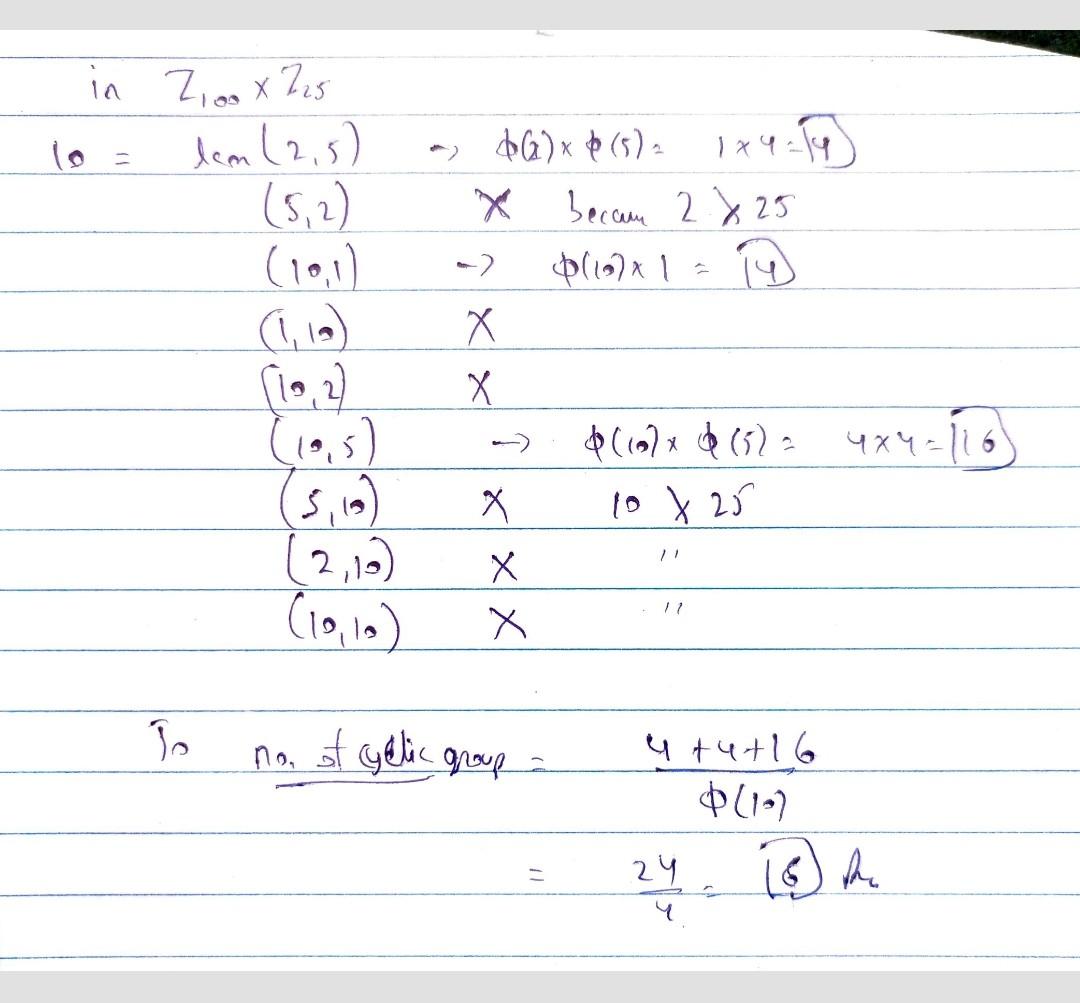 in Z₁₀₀ x Z₂₅
10 = lcm (2,5) → ϕ(2) x ϕ(5) = 1 x 4 = 4
(5,2) X becau 2 ∤ 25
(10,1) → ϕ(10) x 1 = 4
(1,10) X
(10,2) X
(10,5) → ϕ(10) x ϕ(5) = 4 x 4 = 16
(5,10) X 10 ∤ 25
(2,10) X "
(10,10) X "
So no. of cyclic group = 4+4+16 / ϕ(10)
= 24/4 = 6